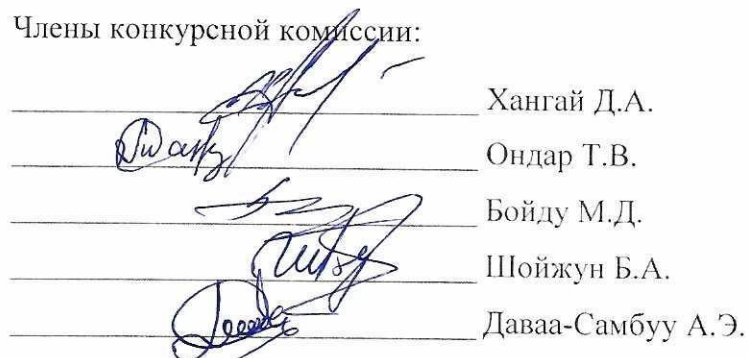 Члены конкурсной комиссии:
Хангай Д.А.
Ондар Т.В.
Бойду М.Д.
Шойжун Б.А.
Даваа-Самбуу А.Э.